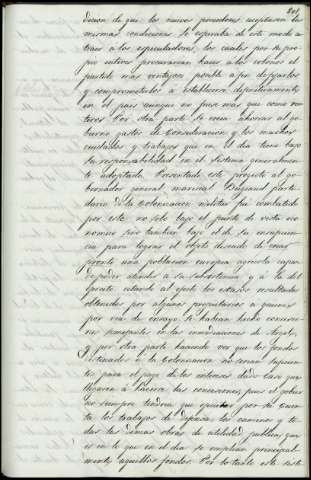 201
dicion de que los nuevos poseedores aceptaran las
mismas condiciones. Se esperaba de este modo a-
traer a los especuladores, los cuales por su pro-
pio interes procurarian hacer a los colonos el
partido mas ventajoso posible a fin de fijarlos
y comprometerlos a establecerse definitivamente
en el pais aunque no fuese mas que como ren-
teros. Por otra parte se creia ahorrar al go-
bierno gastos de consideracion y los muchos
cuidados y trabajos que en el dia tiene bajo
su responsabilidad en el sistema generalmen-
te adoptado. Presentado este proyecto al go-
bernador general, mariscal Bugeaud parti-
dario de la colonizacion militar fué combatido
por este no solo bajo el punto de vista eco-
nomico sino tambien bajo el de su insuficien-
cia para lograr el objeto deseado de crear
pronto una poblacion europea agricola capaz
de poder atender a su subsistencia y a la del
ejercito, citando al efecto los escasos resultados
obtenidos por algunos propietarios a quienes
por via de ensayo se habian hecho concesio-
nes semejantes en las inmediaciones de Argel,
y por otra parte haciendo ver que los fondos
destinados a la colonizacion no serian suficien-
tes para el pago de los intereses dado caso que
llegaran a hacerse las concesiones, pues el gobier-
no siempre tendria que ejecutar por su cuen-
ta los trabajos de defensa, los caminos y to-
das las demas obras de utilidad publica que
es en lo que en el dia se emplean principal-
mente aquellos fondos. Por lo tanto este siste-